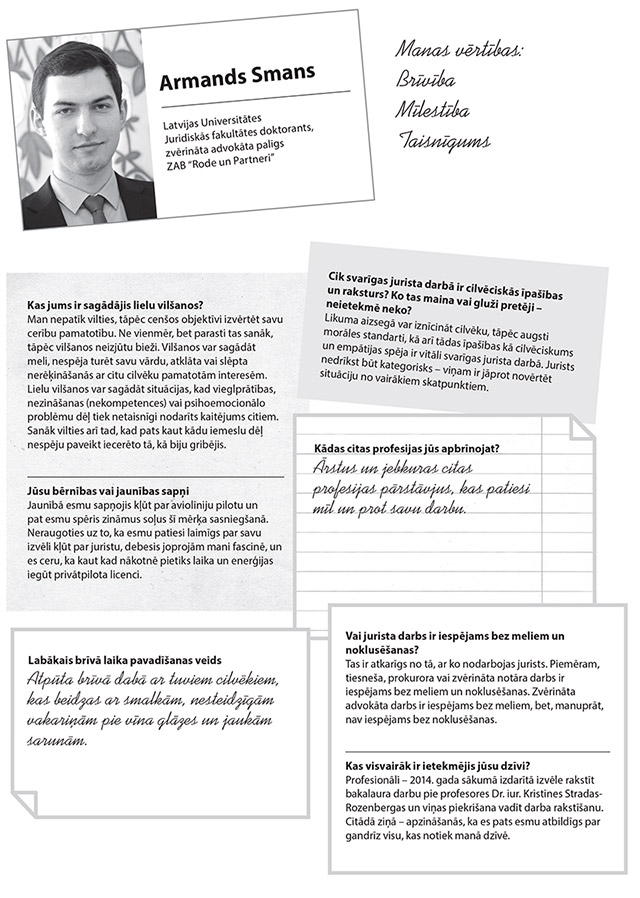 Armands Smans
Latvijas Universitātes
Juridiskās fakultātes doktorants,
zvērināta advokāta palīgs
ZAB "Rode un Partneri"
Manas vērtības:
Brīvība
Mīlestība
Taisnīgums
Kas jums ir sagādājis lielu vilšanos?
Man nepatīk vilties, tāpēc cenšos objektīvi izvērtēt savu
cerību pamatotību. Ne vienmēr, bet parasti tas sanāk,
tāpēc vilšanos neizjūtu bieži. Vilšanos var sagādāt
meli, nespēja turēt savu vārdu, atklāta vai slēpta
nerēķināšanās ar citu cilvēku pamatotām interesēm.
Lielu vilšanos var sagādāt situācijas, kad vieglprātības,
nezināšanas (nekompetences) vai psihoemocionālo
problēmu dēļ tiek netaisnīgi nodarīts kaitējums citiem.
Sanāk vilties arī tad, kad pats kaut kādu iemeslu dēļ
nespēju paveikt iecerēto tā, kā biju gribējis.
Jūsu bērnības vai jaunības sapņi
Jaunībā esmu sapņojis kļūt par aviolīniju pilotu un
pat esmu spēris zināmus soļus šī mērķa sasniegšanā.
Neraugoties uz to, ka esmu patiesi laimīgs par savu
izvēli kļūt par juristu, debesis joprojām mani fascinē, un
es ceru, ka kaut kad nākotnē pietiks laika un enerģijas
iegūt privātpilota licenci.
Cik svarīgas jurista darbā ir cilvēciskās īpašības
un raksturs? Ko tas maina vai gluži pretēji –
neietekmē neko?
Likuma aizsegā var iznīcināt cilvēku, tāpēc augsti
morāles standarti, kā arī tādas īpašības kā cilvēciskums
un empātijas spēja ir vitāli svarīgas jurista darbā. Jurists
nedrīkst būt kategorisks – viņam ir jāprot novērtēt
situāciju no vairākiem skatpunktiem.
Kādas citas profesijas jūs apbrīnojat?
Ārstus un jebkuras citas
profesijas pārstāvjus, kas patiesi
mīl un prot savu darbu.
Labākais brīvā laika pavadīšanas veids
Atpūta brīvā dabā ar tuviem cilvēkiem,
kas beidzas ar smalkām, nesteidzīgām
vakariņām pie vīna glāzes un jaukām
sarunām.
Vai jurista darbs ir iespējams bez meliem un
noklusēšanas?
Tas ir atkarīgs no tā, ar ko nodarbojas jurists. Piemēram,
tiesneša, prokurora vai zvērināta notāra darbs ir
iespējams bez meliem un noklusēšanas. Zvērināta
advokāta darbs ir iespējams bez meliem, bet, manuprāt,
nav iespējams bez noklusēšanas.
Kas visvairāk ir ietekmējis jūsu dzīvi?
Profesionāli – 2014. gada sākumā izdarītā izvēle rakstīt
bakalaura darbu pie profesores Dr. iur. Kristines Stradas-
Rozenbergas un viņas piekrišana vadīt darba rakstīšanu.
Citādā ziņā – apzināšanās, ka es pats esmu atbildīgs par
gandrīz visu, kas notiek manā dzīvē.